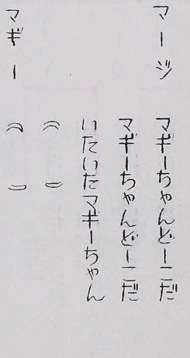 マージ　マギーちゃんどーこだ
マギーちゃんどーこだ
いたいたマギーちゃん
（　）
マギー（　）